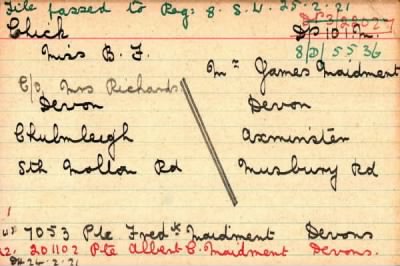 File passed to Reg: 8. S.W. 25.2.21
Click
D/S 10 1. M.
Miss B. F.
8/D/5536
c/o Mrs Richards
Mr James Maidment
Devon
Devon
Chulmleigh
Axminster
Sth Molton Rd
Musbury Rd
7053 Pte Fredk Maidment Devons
201102 Pte Albert C. Maidment Devons.
24.2.21